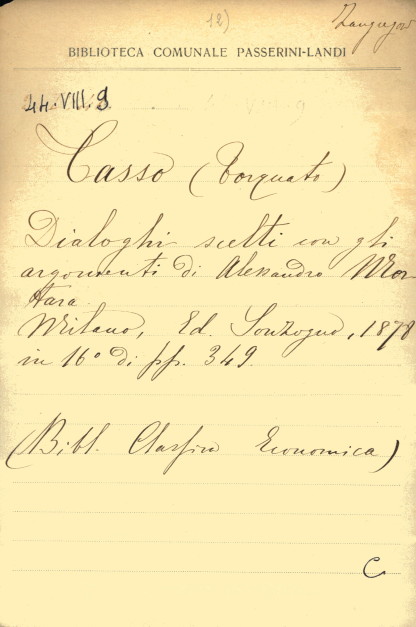 12)
BIBLIOTECA COMUNALE PASSERINI-LANDI
44.VIII.9
Tasso (Torquato)
Dialoghi scelti con gli
argomenti di Alessandro Mor
tara.
Milano, Ed. Sonzogno, 1878
in 16° di pp. 349.
(Bibl. Classica Economica)
C